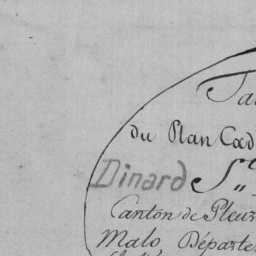 Ta
du Plan Cad
Dinard S.te
Canton de Pleur
Malo, Départe